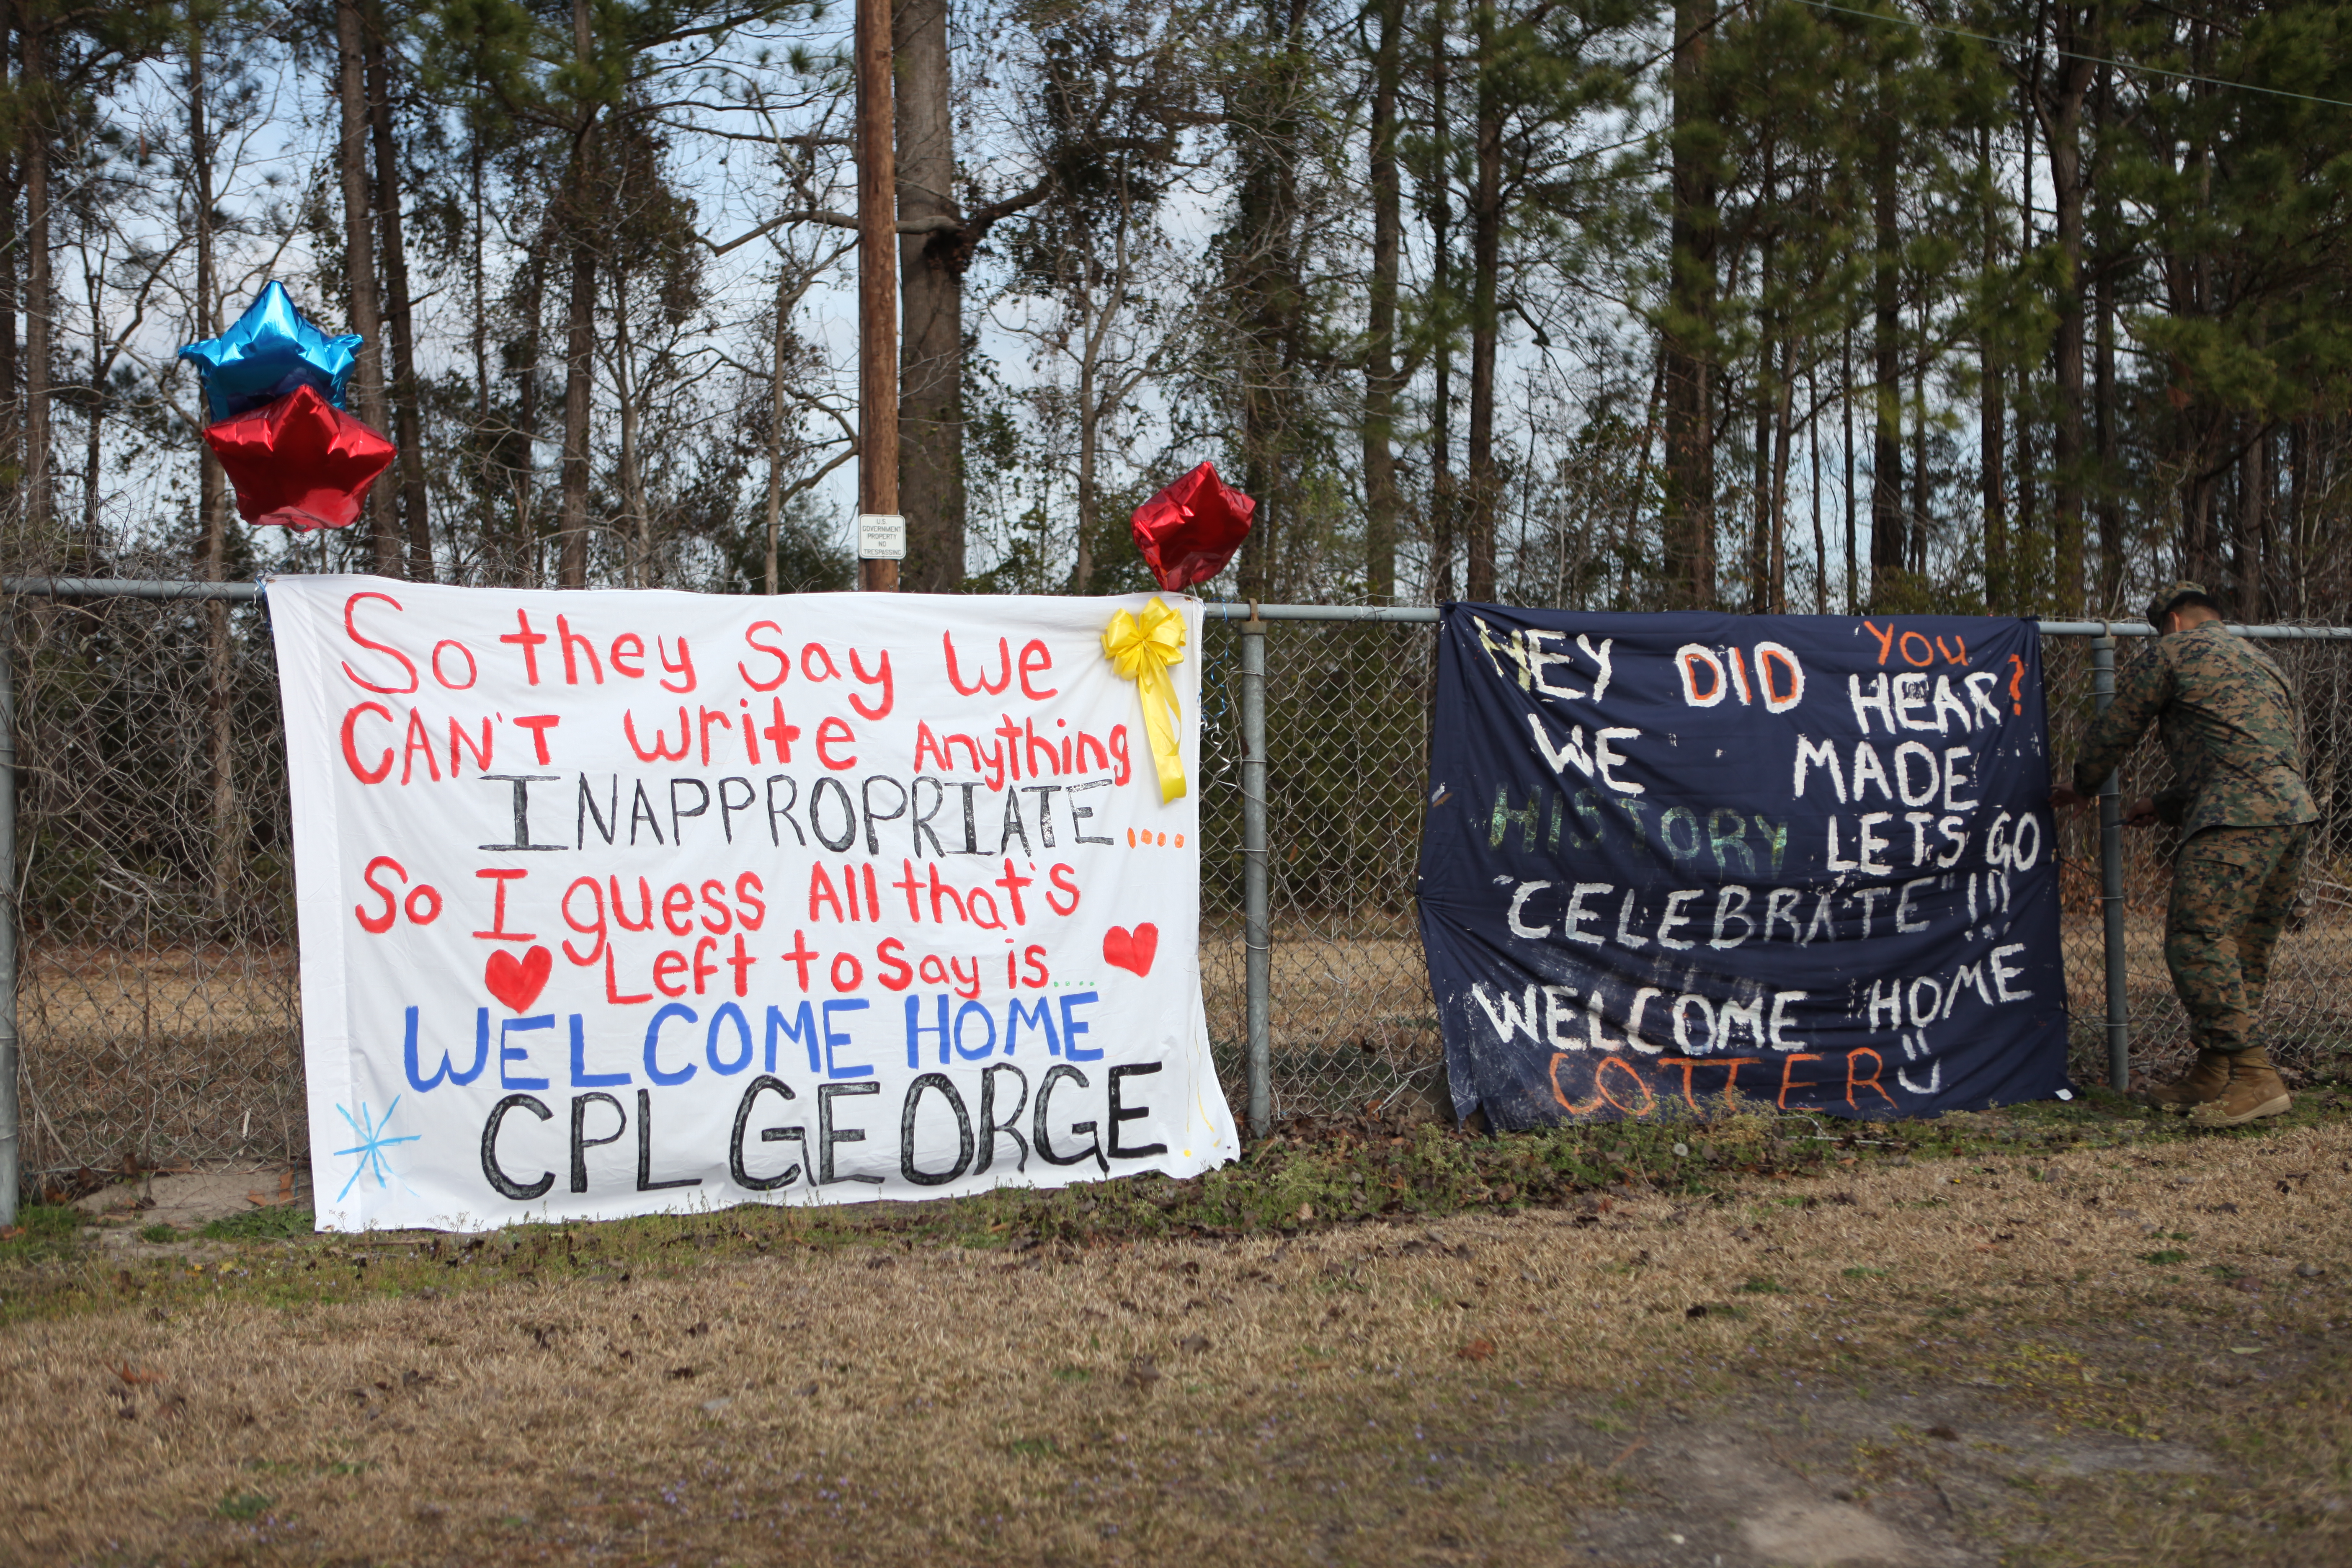 U.S.
GOVERNMENT
PROPERTY
NO
TRESPASSING
So they Say We
CAN'T write Anything
INAPPROPRIATE....
So I guess All that's
Left to Say is....
WELCOME HOME
CPL GEORGE
HEY DID YOU HEAR?
WE MADE
HISTORY LETS GO
"CELEBRATE"!!!
WELCOME HOME
COTTER